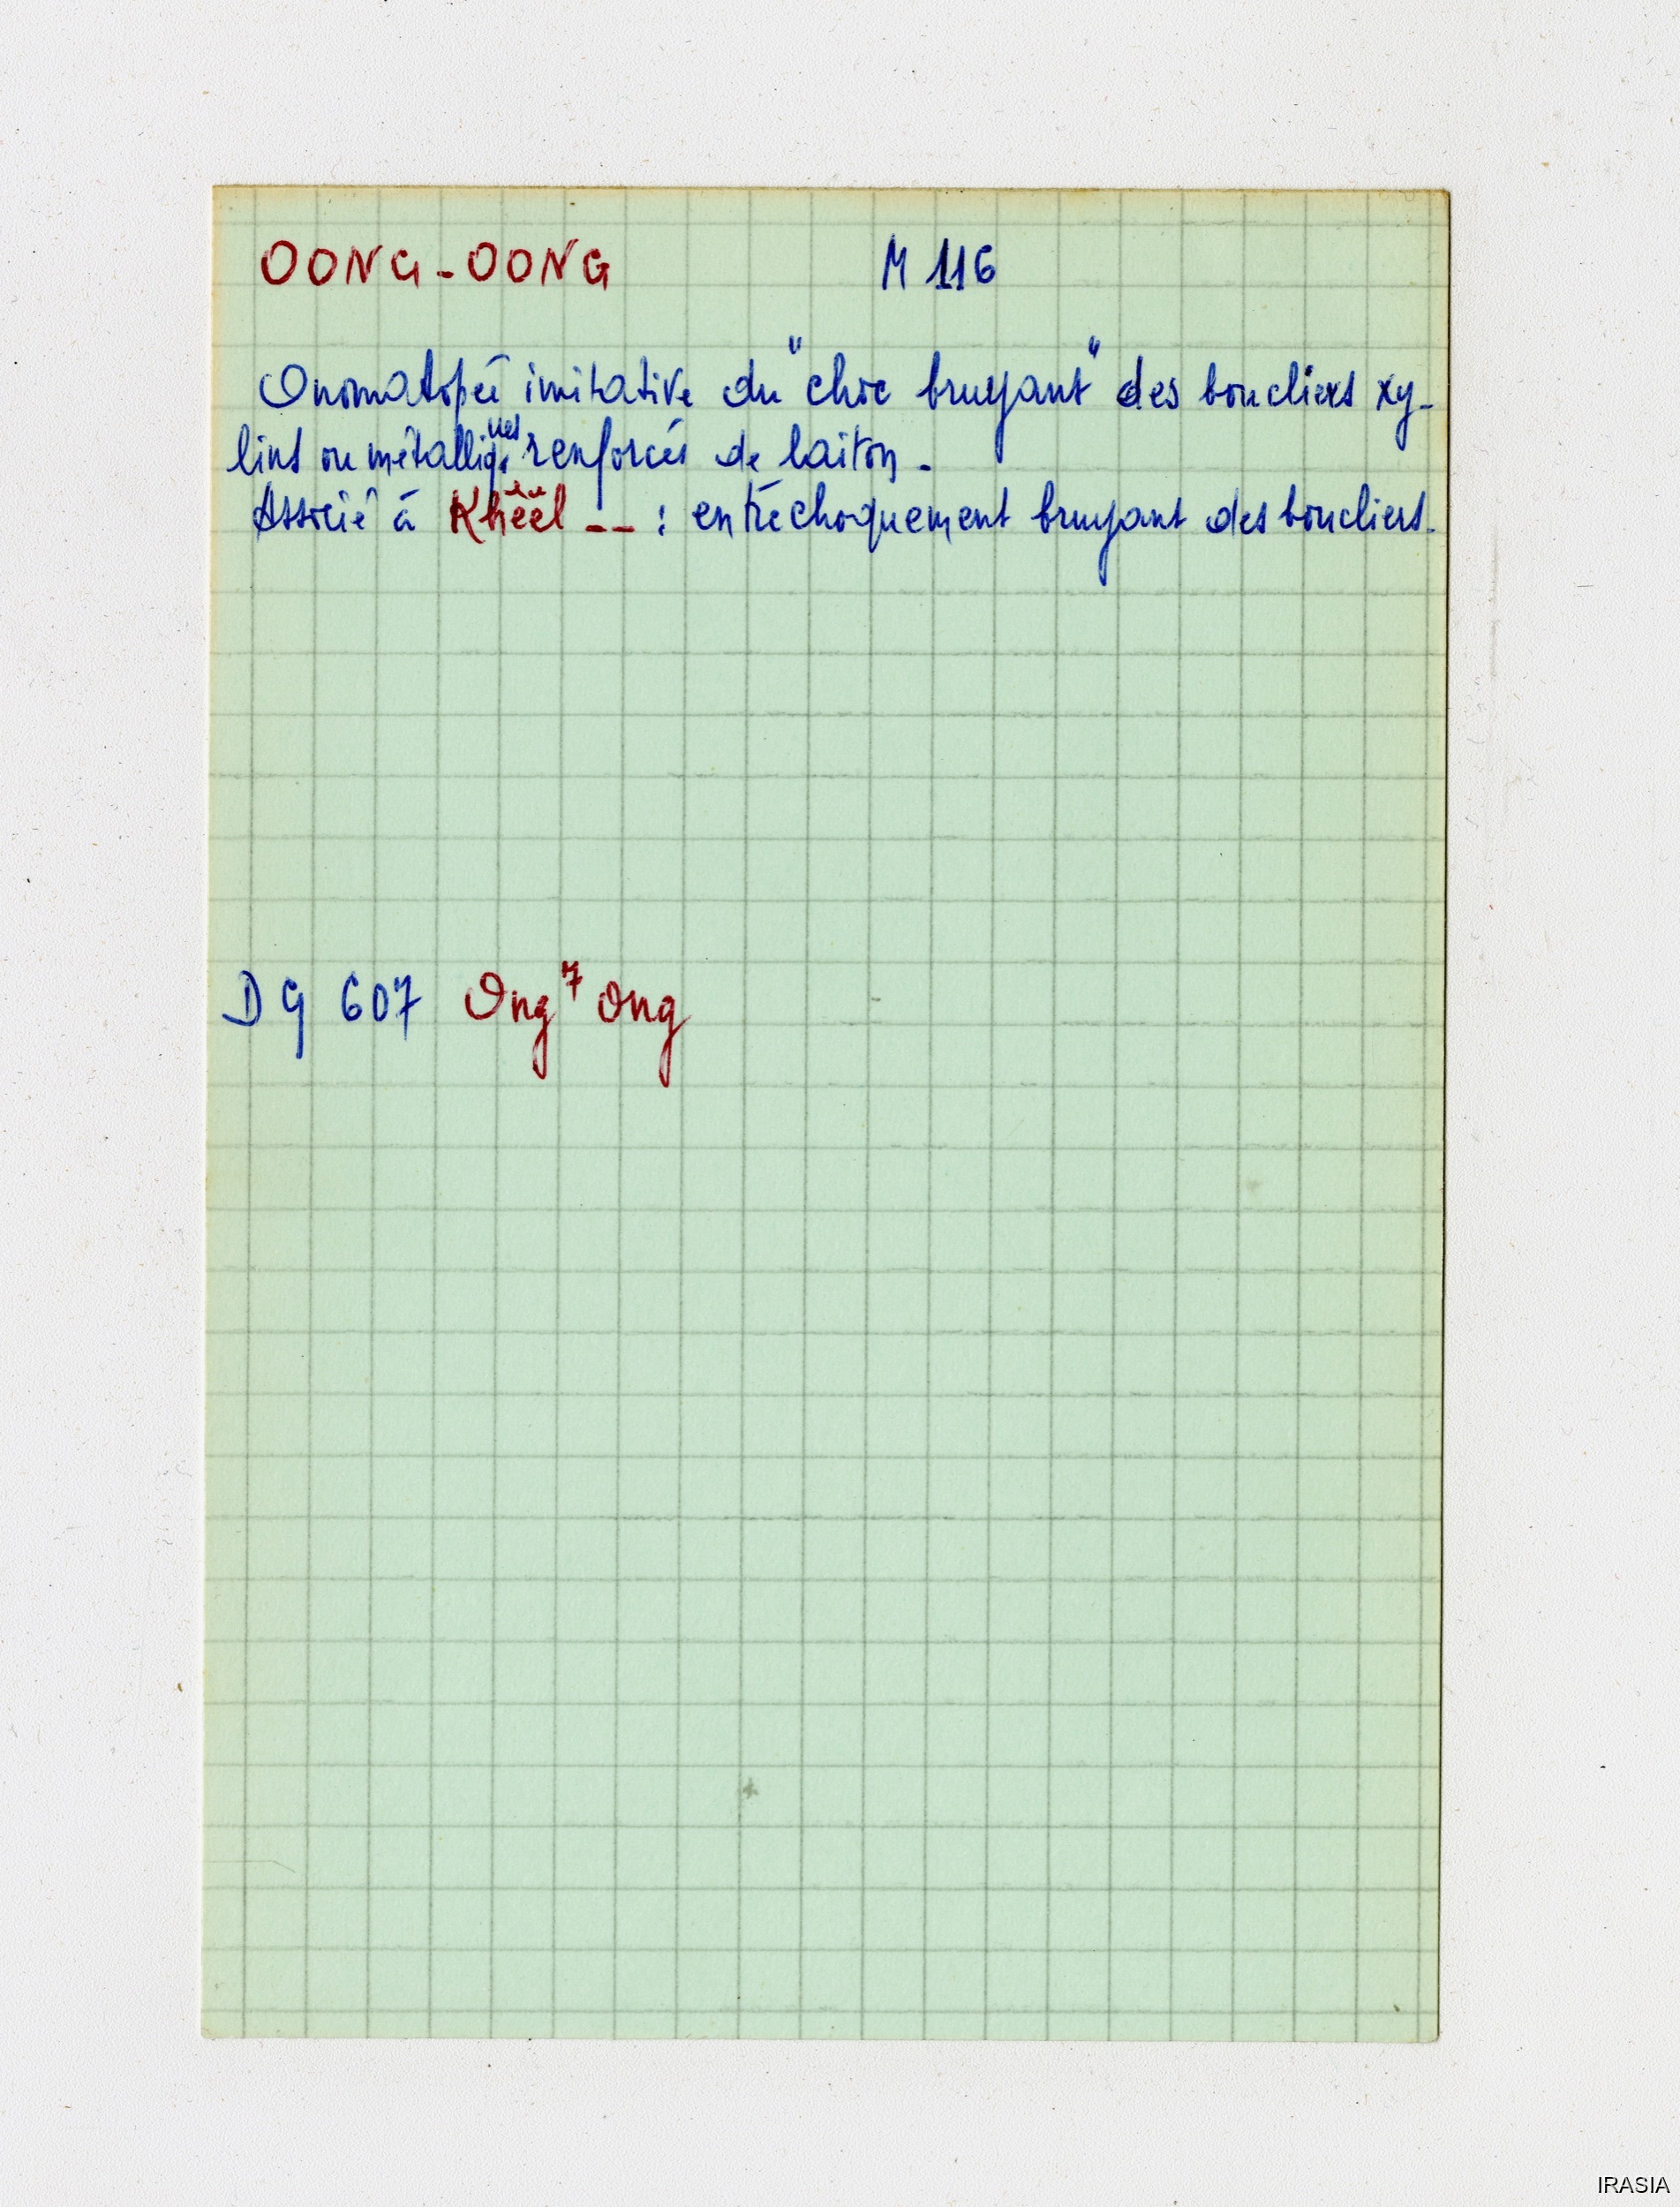 OONG-OONG M 116
Onomatopée imitative du "choc bruyant" des boucliers xy-
lins ou métalliques renforcés de laiton.
Associé à Khêêl -- : entrechoquement bruyant des boucliers.
DG 607 Ong⁷ ong
IRASIA